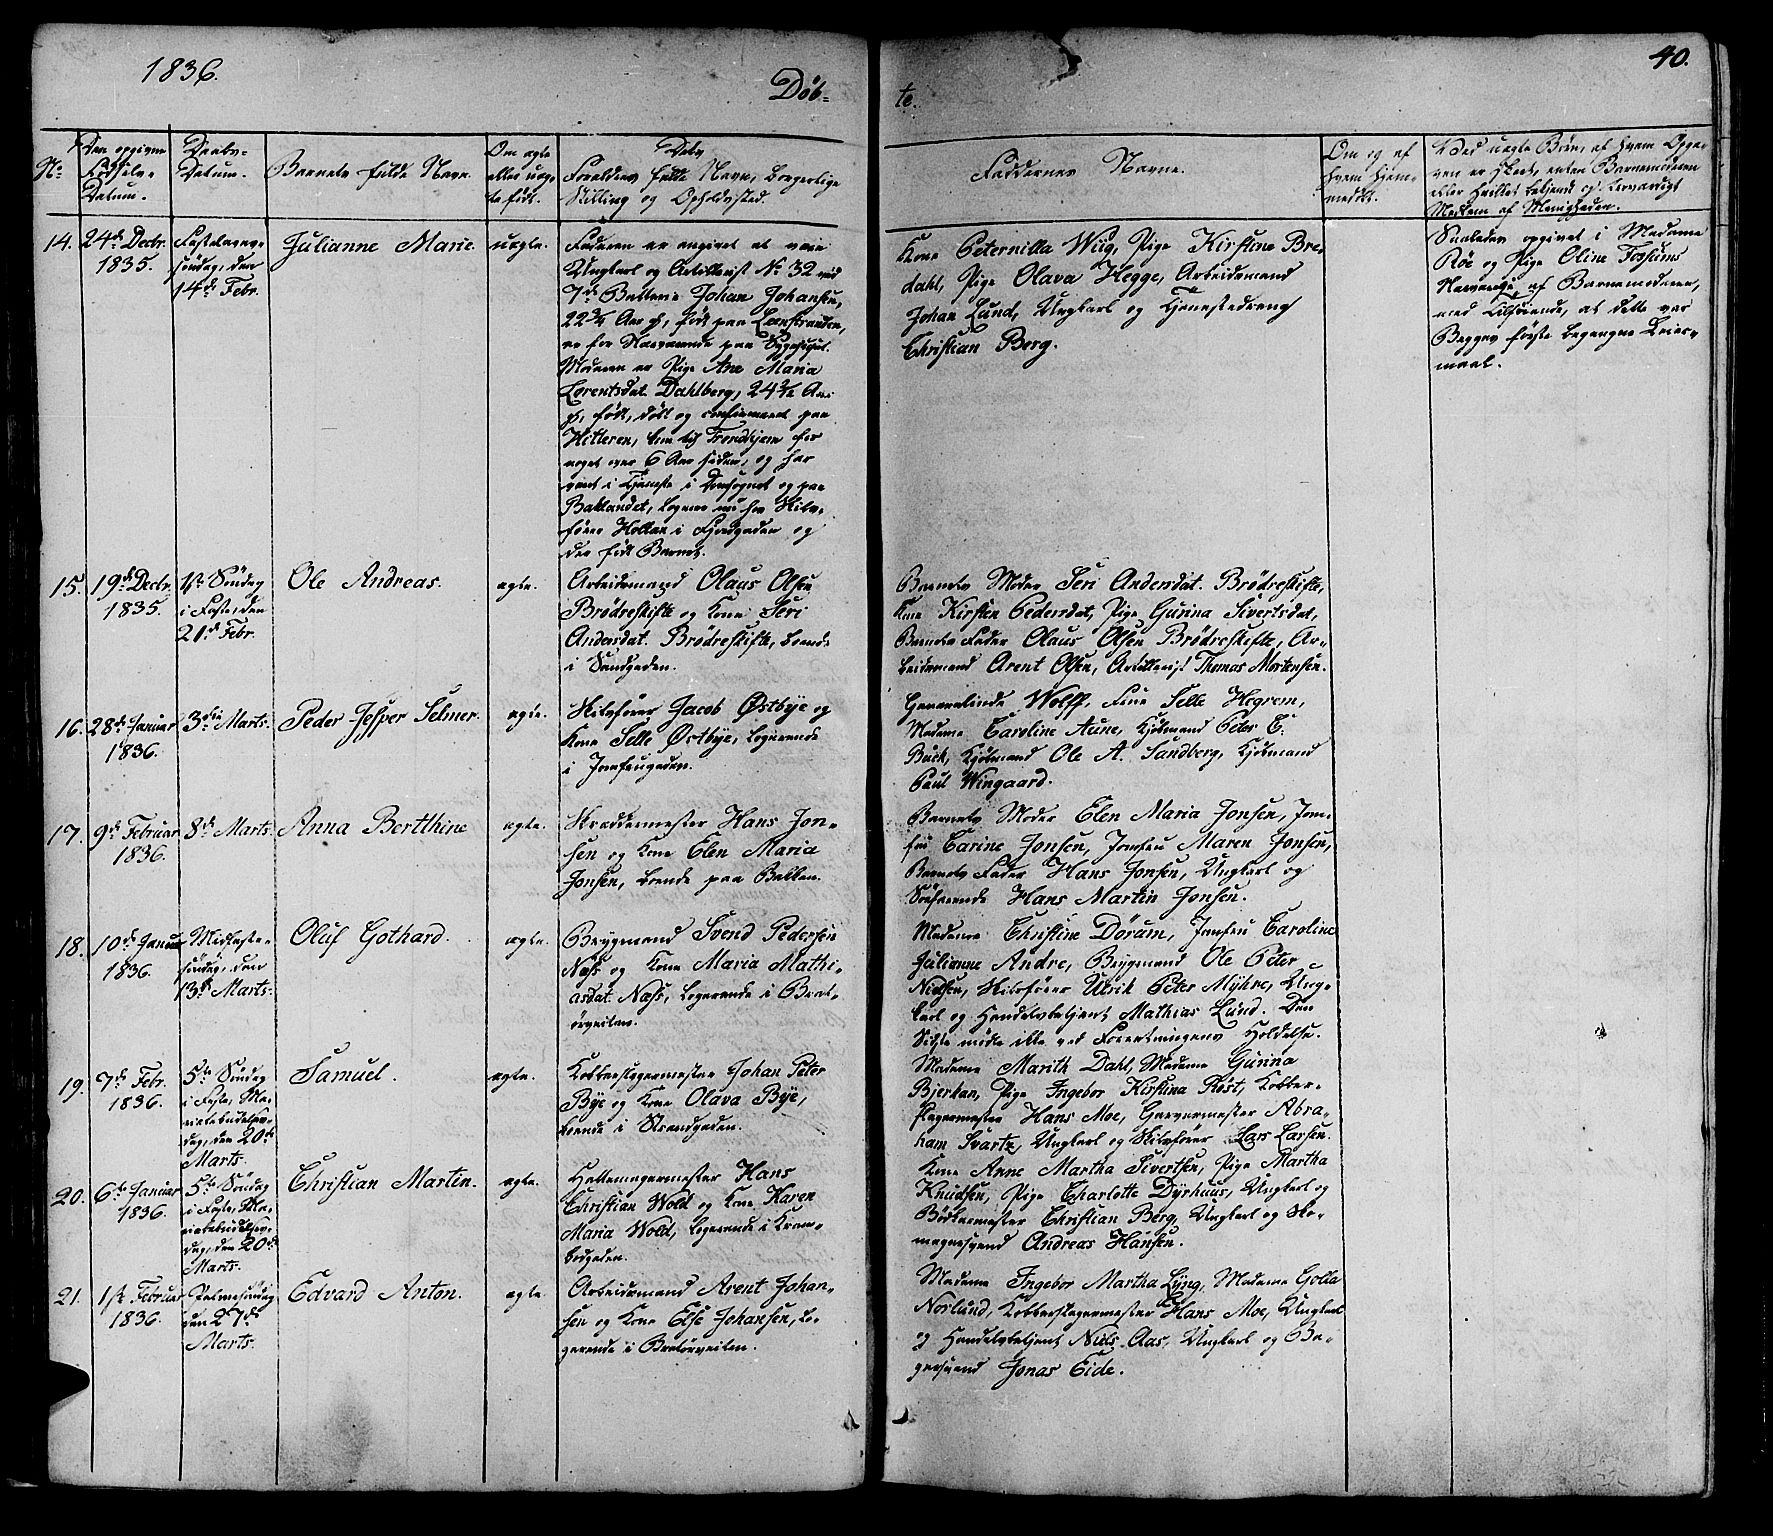 1836.
Døb-
te.
40.
No
Den opgivne
Fødsels-
Datum.
Daabs-
Datum.
Barnets fulde Navn.
Om ægte
eller uæg-
te født.
Dets
Forældres fulde Navn, borgerlige
Stilling og Opholdssted.
Faddernes Navne.
Om og af
hvem hjem-
medøbt.
Ved uægte Børn, af hvem Opga-
ven er skeet, enten Barnemoderen
eller hvilket bekjendt og troværdigt
Medlem af Menigheden.
14.
24de Decbr.
1835.
Fastelavns-
søndag, den
14de Febr.
Julianne Marie
uægte.
Faderen er angivet at være
Ungkarl og Artillerist No 32 ved
7de Batterie Johan Johansen,
22 3/4 Aar gl, født paa Leenstranden,
er for Nærværende paa Sygehuset.
Moderen er Pige Ane Maria
Lorentsdat. Dahlberg, 24 1/2 Aar
gl, født, døbt og confirmeret paa
Hitteren, kom til Trondhjem for
noget over 6 Aar siden, og har
været i Tjeneste i Domsognet og paa
Baklandet, logerer nu hos Skibs-
fører Holtan i Fjordgaden og
der født Barnet.
Kone Peternilla Wiig, Pige Kirstine Bre-
dahl, Pige Olava Hegge, Arbeidsmand
Johan Lund, Ungkarl og Tjenestedreng
Christian Berg.
Saaledes opgivet i Madame
Røe og Pige Oline Fossums
Nærværelse af Barnemoderen,
med Tilføiende, at dette var
Begges første begangne Leier-
maal.
15.
19de Decbr.
1835.
1ste Søndag
i Faste, den
21de Febr.
Ole Andreas.
ægte.
Arbeidsmand Olaus Olsen
Brødreskifte og Kone Seri
Andersdat. Brødreskifte, boende
i Sandgaden.
Barnets Moder Seri Andersdat. Brødreskifte,
Kone Kirsten Pedersdat, Pige Gurina Sivertsdat,
Barnets Fader Olaus Olsen Brødreskifte, Ar-
beidsmand Arent Olsen, Artillerist Thomas Mortensen.
16.
28de Januar
1836.
3die Marts.
Peder Jesper Selmer.
ægte.
Skibsfører Jacob Østbye og
Kone Selle Østbye, logerende
i Jomfrugaden.
Generalinde Wolff, Frue Selle Hegrem,
Madame Caroline Aune, Kjøbmand Peter C.
Buck, Kjøbmand Ole A. Sandberg, Kjøbmand
Paul Wingaard.
17.
9de Februar
1836.
8de Marts.
Anna Berthine
ægte.
Skræddermester Hans Jon-
sen og Kone Elen Maria
Jonsen, boende paa Bakken.
Barnets Moder Elen Maria Jonsen, Jom-
fru Carine Jonsen, Jomfru Maren Jonsen,
Barnets Fader Hans Jonsen, Ungkarl og
Søefarende Hans Martin Jonsen.
18.
10de Januar
1836.
Midfaste-
søndag, den
13de Marts.
Oluf Gothard.
ægte.
Brygmand Svend Pedersen
Næss og Kone Maria Mathi-
asdat. Næss, logerende i Brat-
ørveiten.
Madame Christine Dorum, Jomfru Caroline
Julianne Andre, Brygmand Ole Peter
Nielsen, Skibsfører Ulrik Peter Myhre, Ung-
karl og Handelsbetjent Mathias Lund. Den
Sidste mødte ikke ved Forretningens Holdelse.
19.
7de Febr.
1836.
5te Søndag
i Faste, Ma-
riæbebudelses-
dag, den 20de
Marts.
Samuel.
ægte.
Kobberslagermester Johan Peter
Bye og Kone Olava Bye,
boende i Strandgaden.
Madame Marith Dahl, Madame Gurina
Bjerkan, Pige Ingebor Kirstina Røst, Kobber-
slagermester Hans Moe, Garvermester Abra-
ham Svartz, Ungkarl og Skibsfører Lars Larsen.
20.
6te Januar
1836.
5te Søndag
i Faste, Ma-
riæbebudelses-
dag, den 20de
Marts.
Christian Martin.
ægte.
Hattemagermester Hans
Christian Wold og Kone Karen
Maria Wold, logerende i Kram-
bodgaden.
Kone Anne Martha Sivertsen, Pige Martha
Knudsen, Pige Charlotte Dyrhuus, Ungkarl og
Bødkermester Christian Berg, Ungkarl og Sko-
magersvend Andreas Hansen.
21.
1ste Februar
1836.
Palmesøndag
den 27de
Marts.
Edvard Anton.
ægte.
Arbeidsmand Arent Johan-
sen og Kone Else Johansen, lo-
gerende i Bratørveiten.
Madame Ingebor Martha Lyng, Madame Golla
Norlund, Kobberslagermester Hans Moe, Ungkarl
og Handelsbetjent Niels Aas, Ungkarl og Ba-
gersvend Jonas Eide.